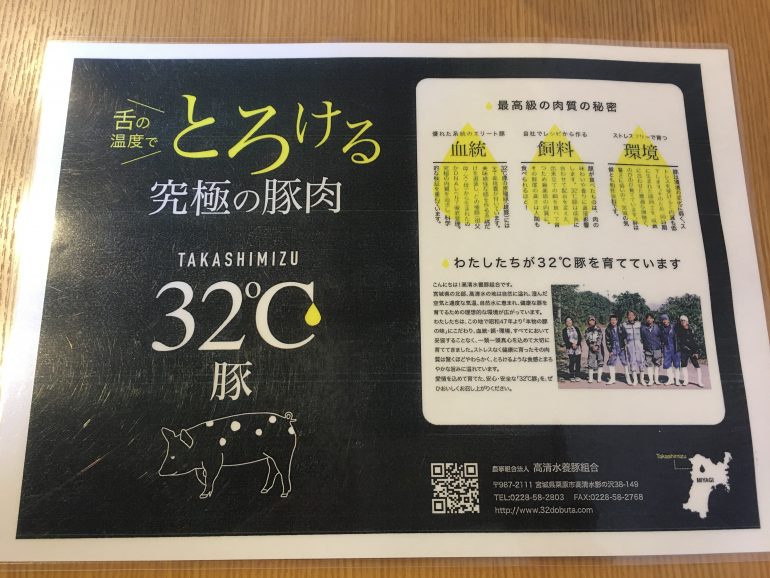 舌の
温度で
とろける
究極の豚肉
TAKASHIMIZU
32℃
豚
最高級の肉質の秘密
優れた系統のエリート豚
血統
自社でレシピから作る
飼料
ストレスフリーで育つ
環境
わたしたちが32℃豚を育てています
こんにちは!高清水養豚組合です。
宮城県の北部、高清水の地は自然に溢れ、澄んだ
空気と適度な気温、自然水に恵まれ、健康な豚を
育てるための理想的な環境が広がっています。
わたしたちは、この地で昭和47年より「本物の豚
の味」にこだわり、血統・飼・環境、すべてにおいて
妥協することなく、一頭一頭真心を込めて大切に
育ててきました。ストレスなく健康に育ったその肉
質は驚くほどやわらかく、とろけるような食感とまろ
やかな旨みに溢れています。
愛情を込めて育てた、安心・安全な「32℃豚」を、ぜ
ひおいしくお召し上がりください。
農事組合法人 高清水養豚組合
〒987-2111 宮城県栗原市高清水影の沢38-149
TEL:0228-58-2803 FAX:0228-58-2768
http://www.32dobuta.com
Takashimizu
MIYAGI